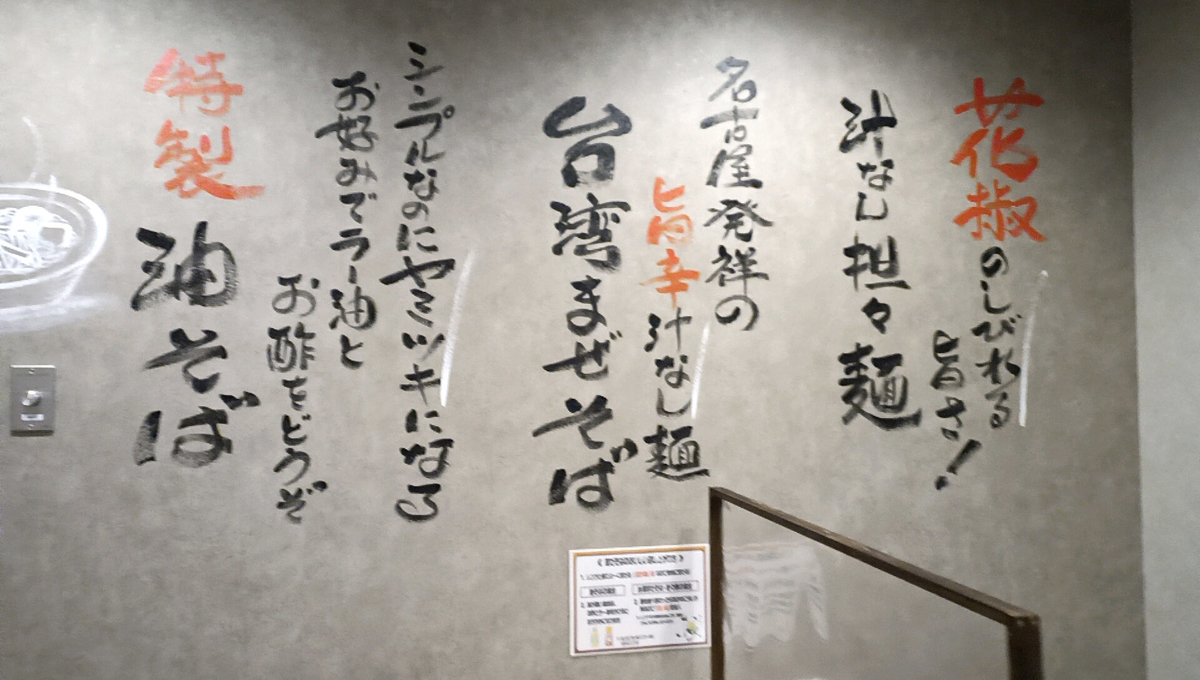 花椒のしびれる
旨さ!
汁なし担々麺
名古屋発祥の
旨辛汁なし麺
台湾まぜそば
シンプルなのにヤミツキになる
お好みでラー油と
お酢をどうぞ
特製油そば